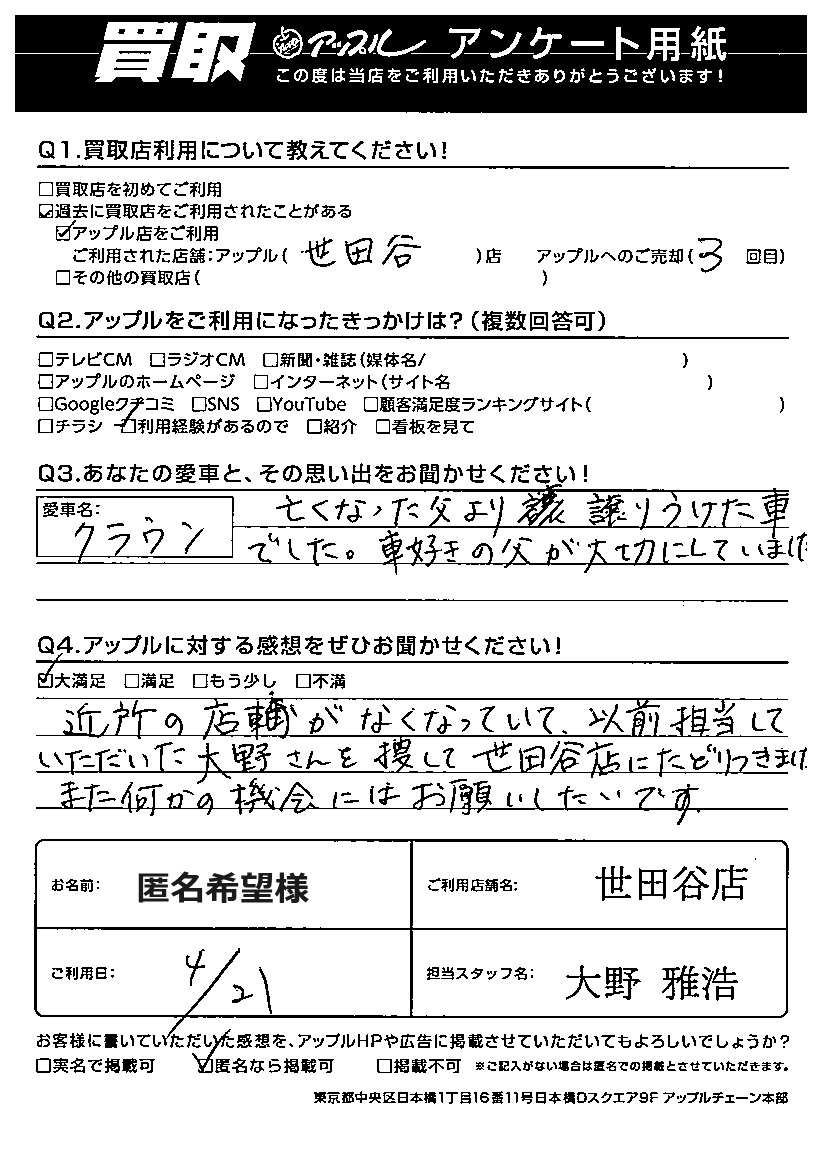 買取 アップル アンケート用紙
この度は当店をご利用いただきありがとうございます!
Q1.買取店利用について教えてください!
□買取店を初めてご利用
☑過去に買取店をご利用されたことがある
☑アップル店をご利用
ご利用された店舗:アップル( 世田谷 )店 アップルへのご売却( 3 回目)
□その他の買取店( )
Q2.アップルをご利用になったきっかけは?(複数回答可)
□テレビCM □ラジオCM □新聞・雑誌(媒体名/ )
□アップルのホームページ □インターネット(サイト名 )
□Googleクチコミ □SNS □YouTube □顧客満足度ランキングサイト( )
□チラシ ☑利用経験があるので □紹介 □看板を見て
Q3.あなたの愛車と、その思い出をお聞かせください!
愛車名:
クラウン
亡くなった父より 譲りうけた車
でした。車好きの父が大切にしていました
Q4.アップルに対する感想をぜひお聞かせください!
☑大満足 □満足 □もう少し □不満
近所の店舗がなくなっていて、以前担当して
いただいた大野さんを捜して世田谷店にたどりつきまし
また何かの機会にはお願いしたいです.
お名前: 匿名希望様 ご利用店舗名: 世田谷店
ご利用日: 4/21 担当スタッフ名: 大野 雅浩
お客様に書いていただいた感想を、アップルHPや広告に掲載させていただいてもよろしいでしょうか?
□実名で掲載可 ☑匿名なら掲載可 □掲載不可 ※ご記入がない場合は匿名での掲載とさせていただきます。
東京都中央区日本橋1丁目16番11号日本橋Dスクエア9F アップルチェーン本部